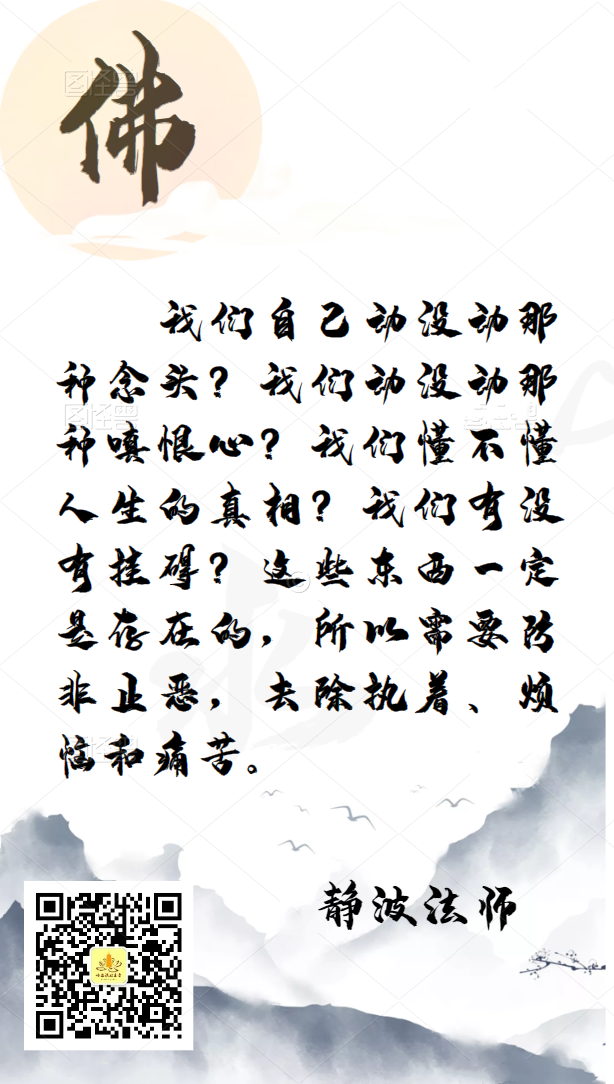 佛
我们自己动没动那
种念头？我们动没动那
种嗔恨心？我们懂不懂
人生的真相？我们有没
有挂碍？这些东西一定
是存在的，所以需要防
非止恶，去除执着、烦
恼和痛苦。
静波法师